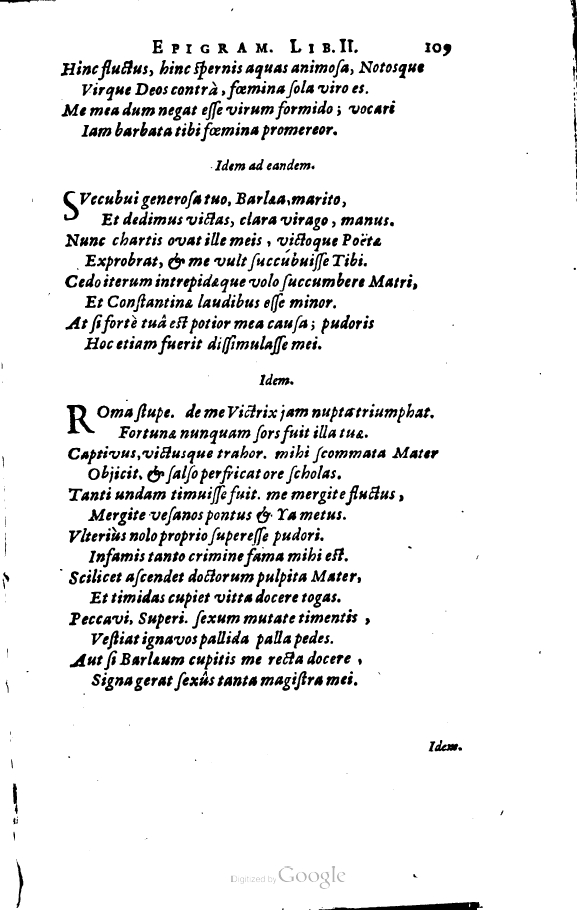 EPIGRAM. LIB. II. 109
Hinc fluctus, hinc spernis aquas animosa, Notosque
Virque Deos contrà, fœmina sola viro es.
Me mea dum negat esse virum formido; vocari
Iam barbata tibi fœmina promereor.
Idem ad eandem.
SVccubui generosa tuo, Barlæa, marito,
Et dedimus victas, clara virago, manus.
Nunc chartis ovat ille meis, victoque Poëta
Exprobrat, & me vult succubuisse Tibi.
Cedo iterum intrepidæque volo succumbere Matri,
Et Constantinæ laudibus esse minor.
At si fortè tuâ est potior mea causa; pudoris
Hoc etiam fuerit dissimulasse mei.
Idem.
ROma stupe. de me Victrix jam nupta triumphat.
Fortunæ nunquam sors fuit illa tuæ.
Captivus, victusque trahor. mihi scommata Mater
Objicit, & salso perfricat ore scholas.
Tanti undam timuisse fuit. me mergite fluctus,
Mergite vesanos pontus & Ya metus.
Vlteriùs nolo proprio superesse pudori.
Infamis tanto crimine fama mihi est.
Scilicet ascendet doctorum pulpita Mater,
Et timidas cupiet vitta docere togas.
Peccavi, Superi. sexum mutate timentis,
Vestiat ignavos pallida palla pedes.
Aut si Barlæum cupitis me recta docere,
Signa gerat sexûs tanta magistra mei.
Idem.
Digitized by Google